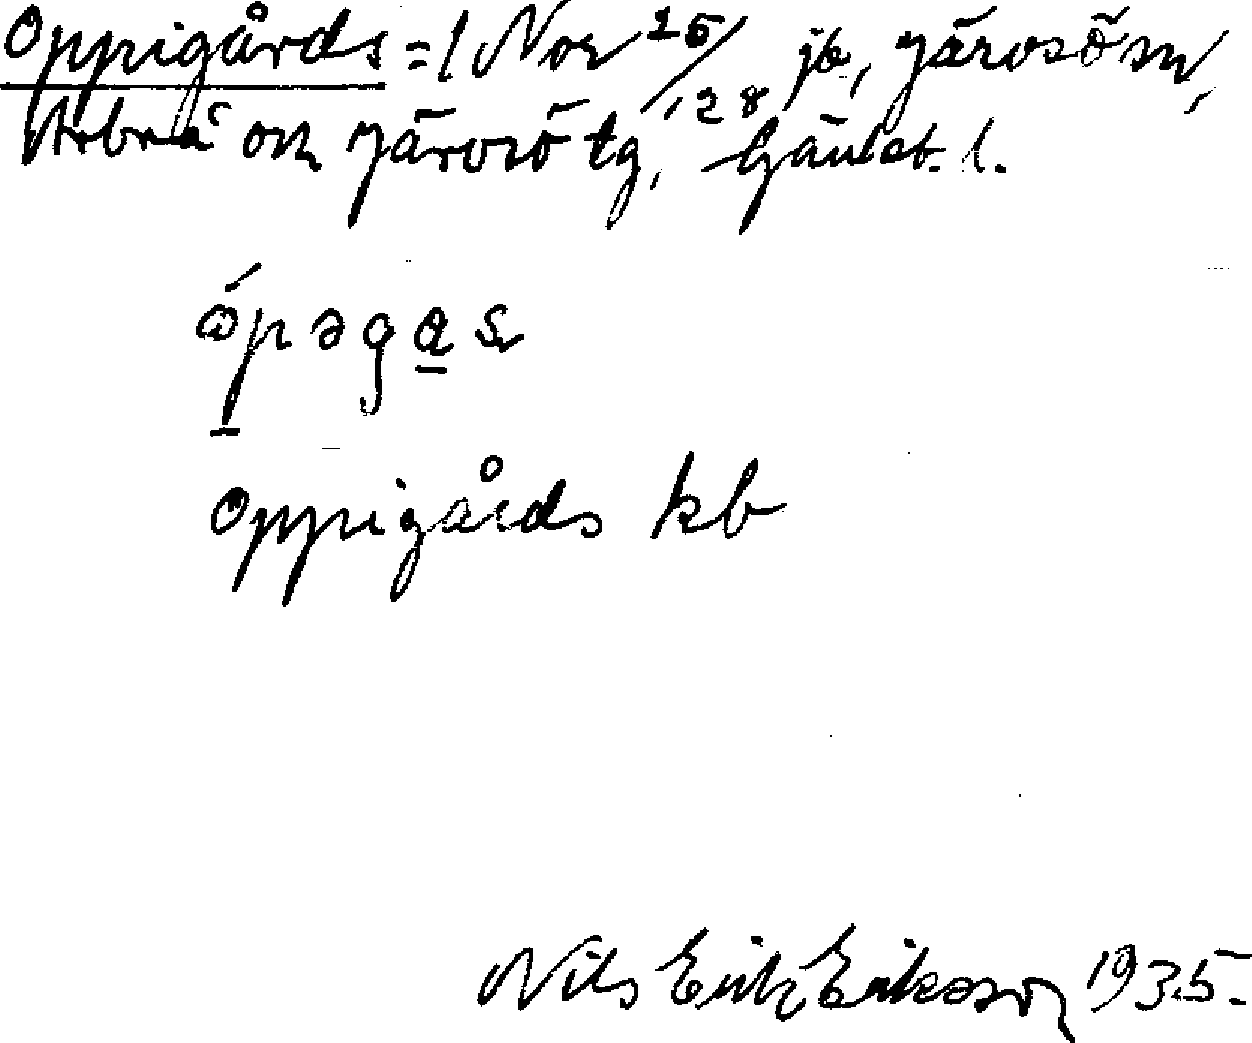 Oppigårds = 1 Nor 26/128 jb, Järvsö sn,
Arbrå och Järvsö tg, Gävleb. l.
ópəgas
Oppigårds kb
Nils Erik Eriksson 1935.